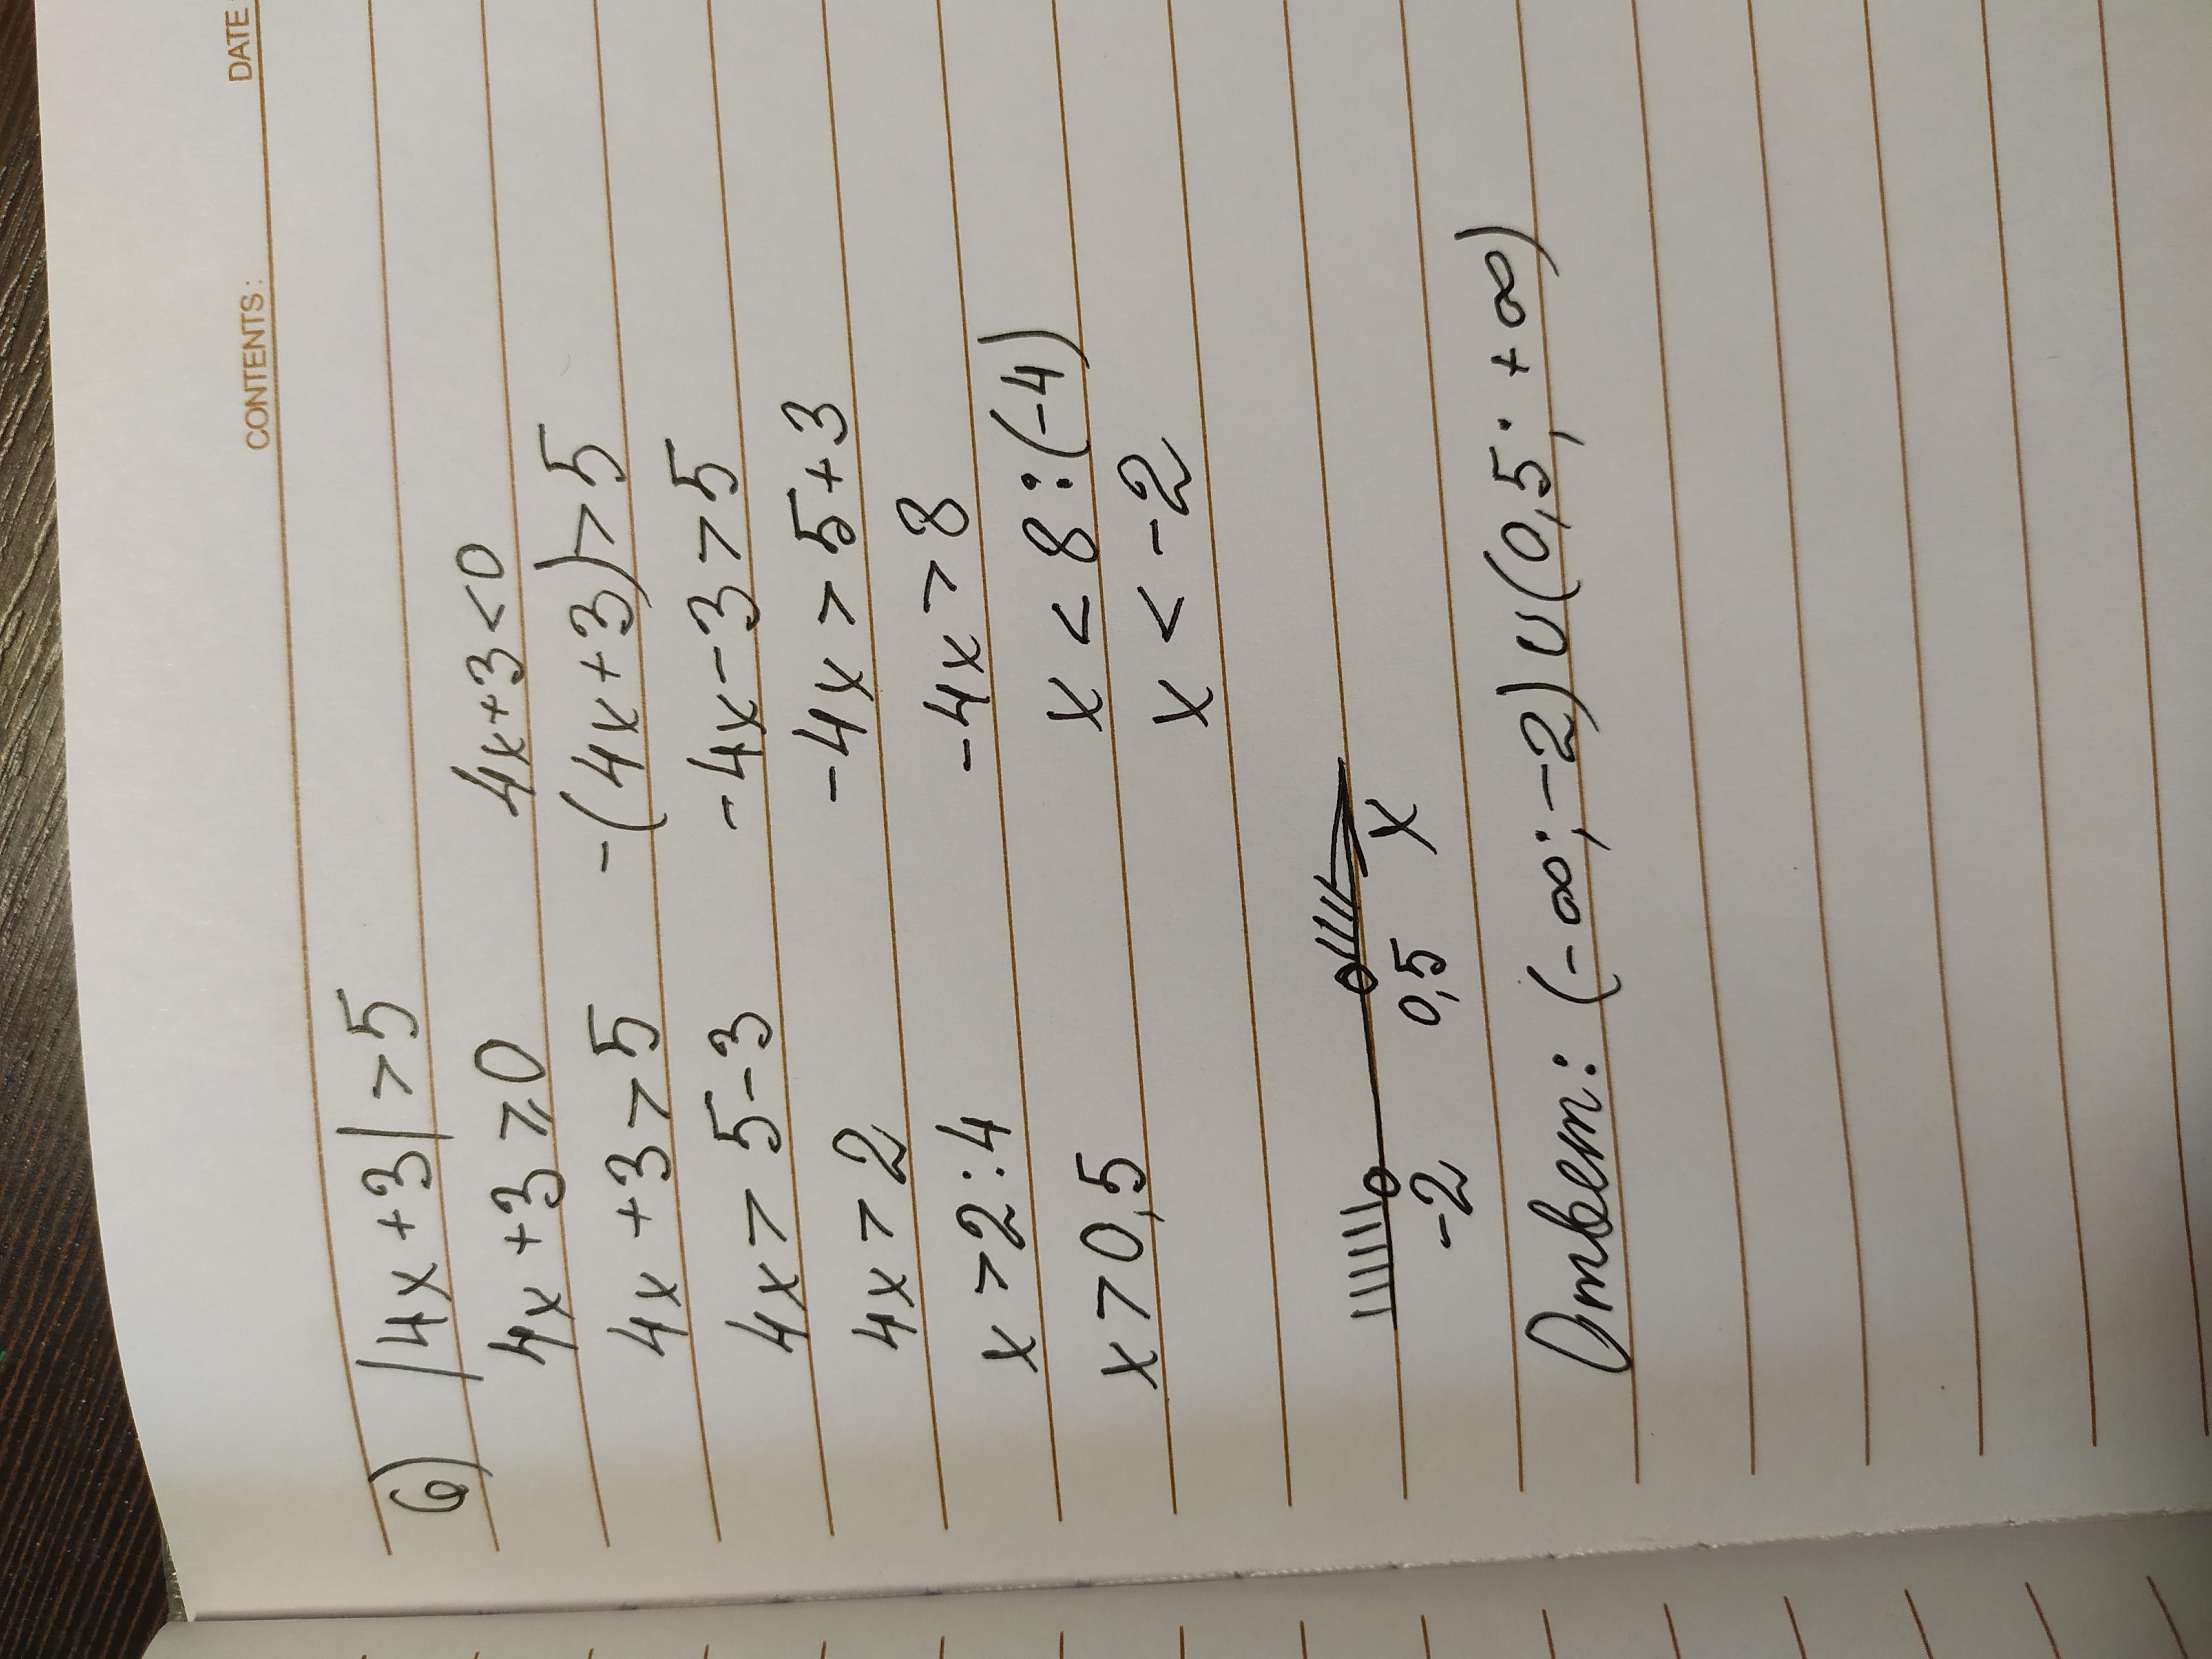 CONTENTS: DATE
6) |4x+3|>5
4x+3≥0 4x+3<0
4x+3>5 -(4x+3)>5
4x>5-3 -4x-3>5
4x>2 -4x>5+3
x>2:4 -4x>8
x>0,5 x<8:(-4)
x<-2
-2 0,5 x
Ответ: (-∞;-2)∪(0,5;+∞)